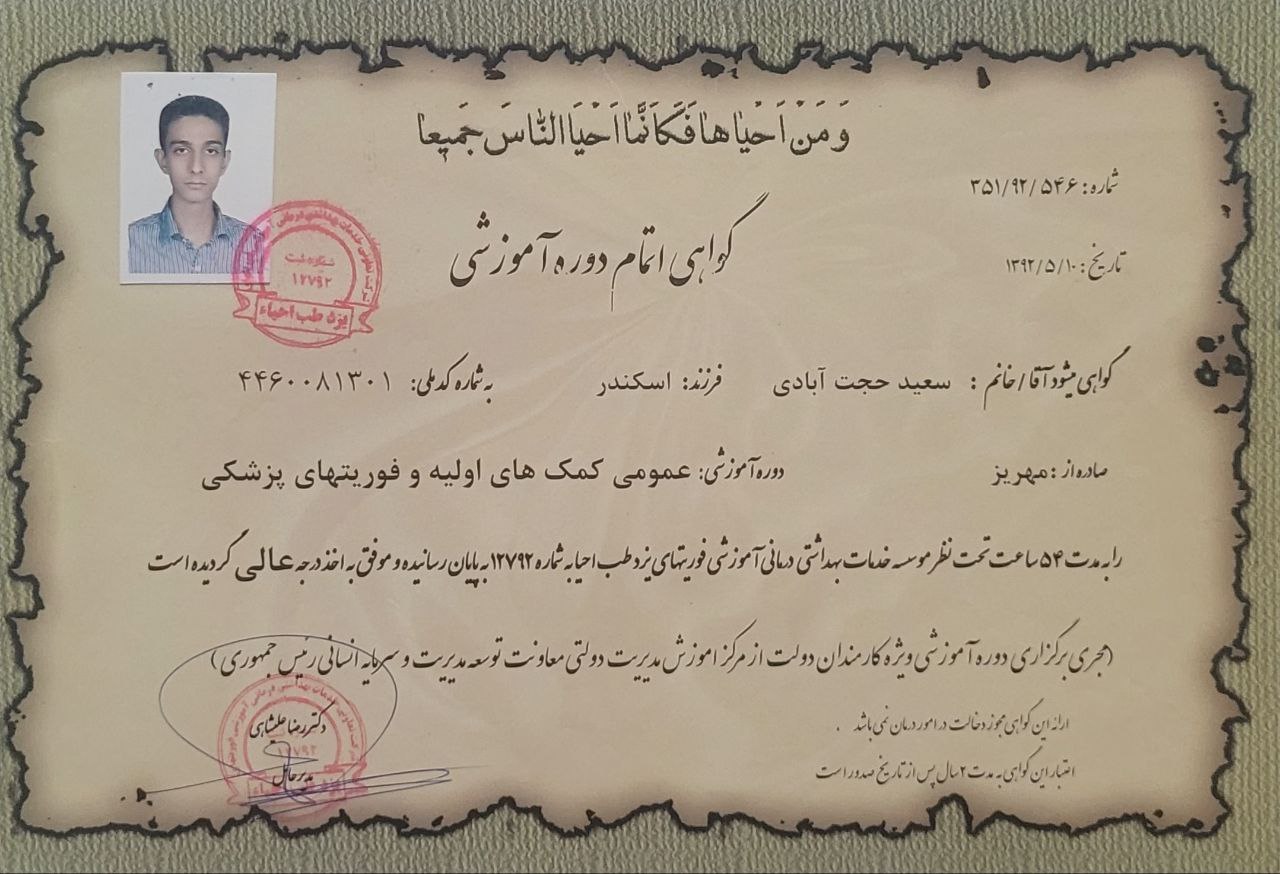 وَ مَنْ اَحْیٰاهٰا فَکَاَنَّمٰا اَحْیَا النّٰاسَ جَمیعا
شماره: ۳۵۱/۹۲/۵۴۶
گواهی اتمام دوره آموزشی
تاریخ: ۱۳۹۲/۵/۱۰
شماره ثبت
۱۲۷۹۲
یزد طب احیاء
گواهی میشود آقا/خانم : سعید حجت آبادی فرزند: اسکندر به شماره کد ملی: ۴۴۶۰۰۸۱۳۰۱
صادره از : مهریز دوره آموزشی: عمومی کمک های اولیه و فوریتهای پزشکی
را به مدت ۵۴ ساعت تحت نظر موسسه خدمات بهداشتی درمانی آموزشی فوریتهای یزد طب احیا به شماره ۱۲۷۹۲ به پایان رسانیده و موفق به اخذ درجه عالی گردیده است
(مجری برگزاری دوره آموزشی ویژه کارمندان دولت از مرکز اموزش مدیریت دولتی معاونت توسعه مدیریت و سرمایه انسانی رئیس جمهوری)
ارائه این گواهی مجوز دخالت در امور درمان نمی باشد .
اعتبار این گواهی به مدت ۲ سال پس از تاریخ صدور است
دکتر رضا علیشاهی
۱۲۷۹۲
مدیر عامل
یزد طب احیاء